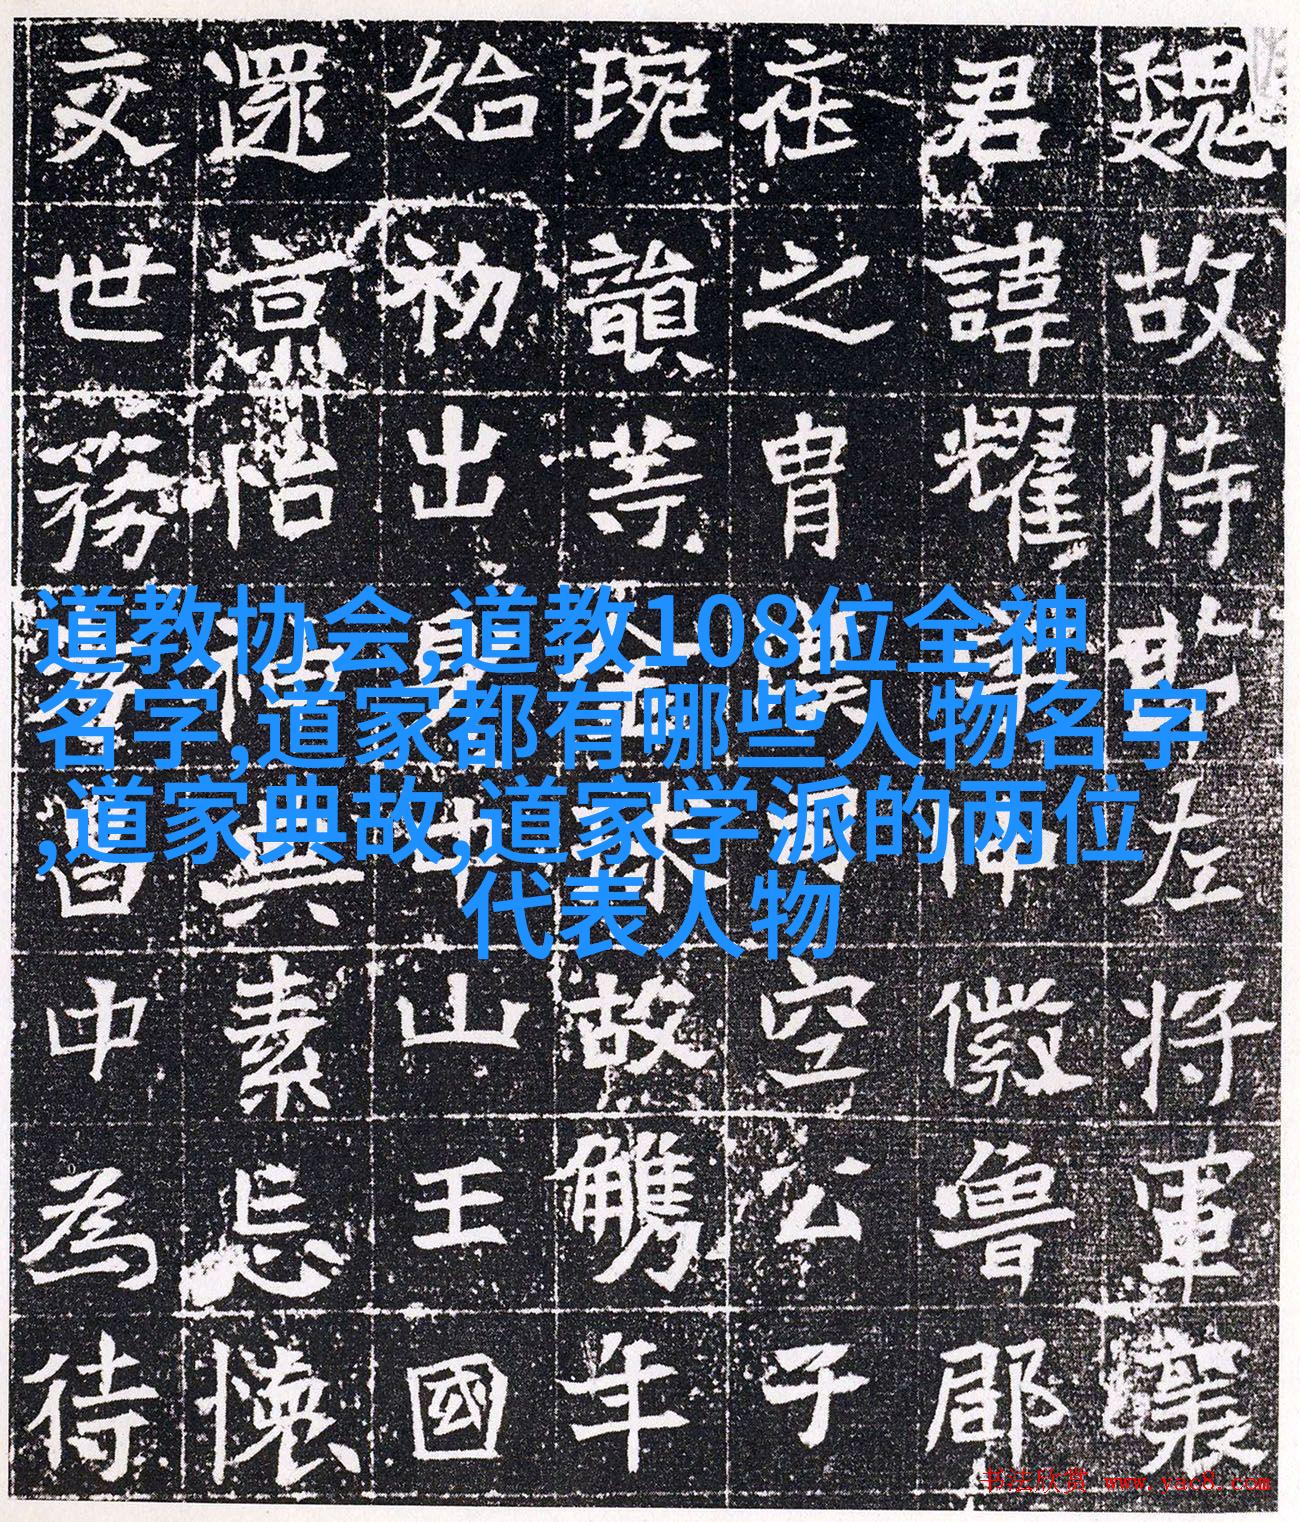 魏故持左將軍襄
君諱耀徽魯郡
在之胄空公子
琬韻崇故觹年
始初出山王國
還亮怡素忘懷
交世務中為待
道教协会,道教108位全神
名字,道家都有哪些人物名字
,道家典故,道家学派的两位
代表人物
书法欣赏 www.yac8.com